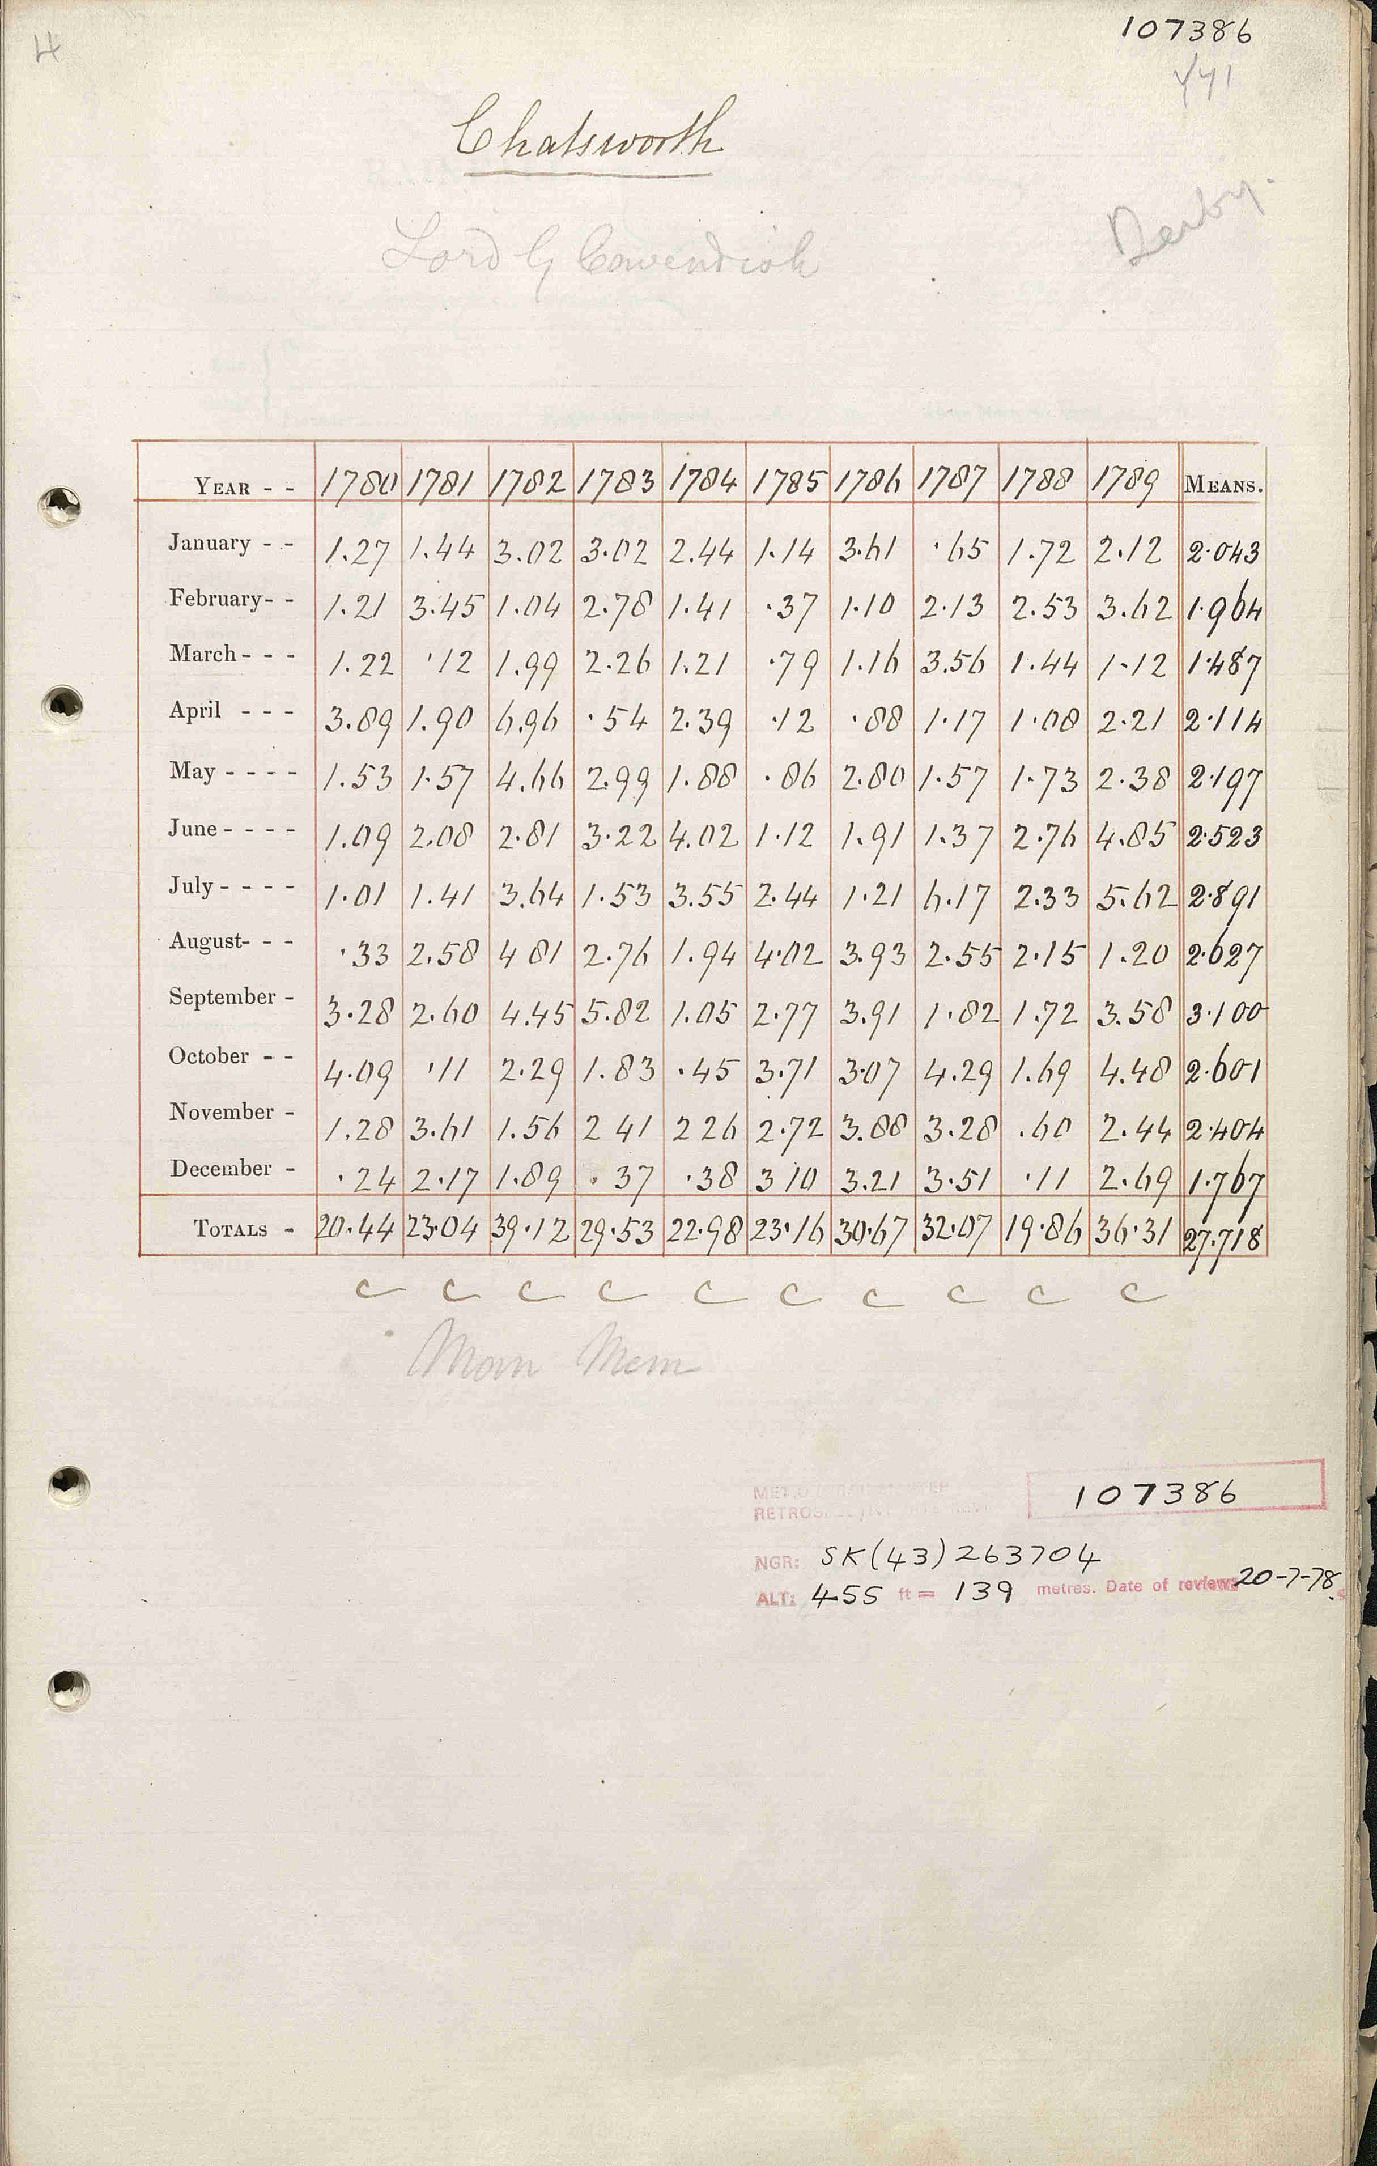 4
107386
Chatsworth
Derby.
Lord G Cavendish
YEAR - - 1780 1781 1782 1783 1784 1785 1786 1787 1788 1789 MEANS.
January - - 1.27 1.44 3.02 3.02 2.44 1.14 3.61 .65 1.72 2.12 2.043
February - - 1.21 3.45 1.04 2.78 1.41 .37 1.10 2.13 2.53 3.62 1.964
March - - - 1.22 .12 1.99 2.26 1.21 .79 1.16 3.56 1.44 1.12 1.487
April - - - 3.89 1.90 6.96 .54 2.39 .12 .88 1.17 1.08 2.21 2.114
May - - - - 1.53 1.57 4.66 2.99 1.88 .86 2.80 1.57 1.73 2.38 2.197
June - - - - 1.09 2.08 2.81 3.22 4.02 1.12 1.91 1.37 2.76 4.85 2.523
July - - - - 1.01 1.41 3.64 1.53 3.55 2.44 1.21 6.17 2.33 5.62 2.891
August - - - .33 2.58 4 81 2.76 1.94 4.02 3.93 2.55 2.15 1.20 2.627
September - 3.28 2.60 4.45 5.82 1.05 2.77 3.91 1.82 1.72 3.58 3.100
October - - 4.09 .11 2.29 1.83 .45 3.71 3.07 4.29 1.69 4.48 2.601
November - 1.28 3.61 1.56 2 41 2 26 2.72 3.88 3.28 .60 2.44 2.404
December - .24 2.17 1.89 .37 .38 3 10 3.21 3.51 .11 2.69 1.767
TOTALS - 20.44 23.04 39.12 29.53 22.98 23.16 30.67 32.07 19.86 36.31 27.718
C C C C C C C C C C
107386
NGR: SK(43)263704
ALT: 455 ft = 139 metres. Date of review 20-7-78